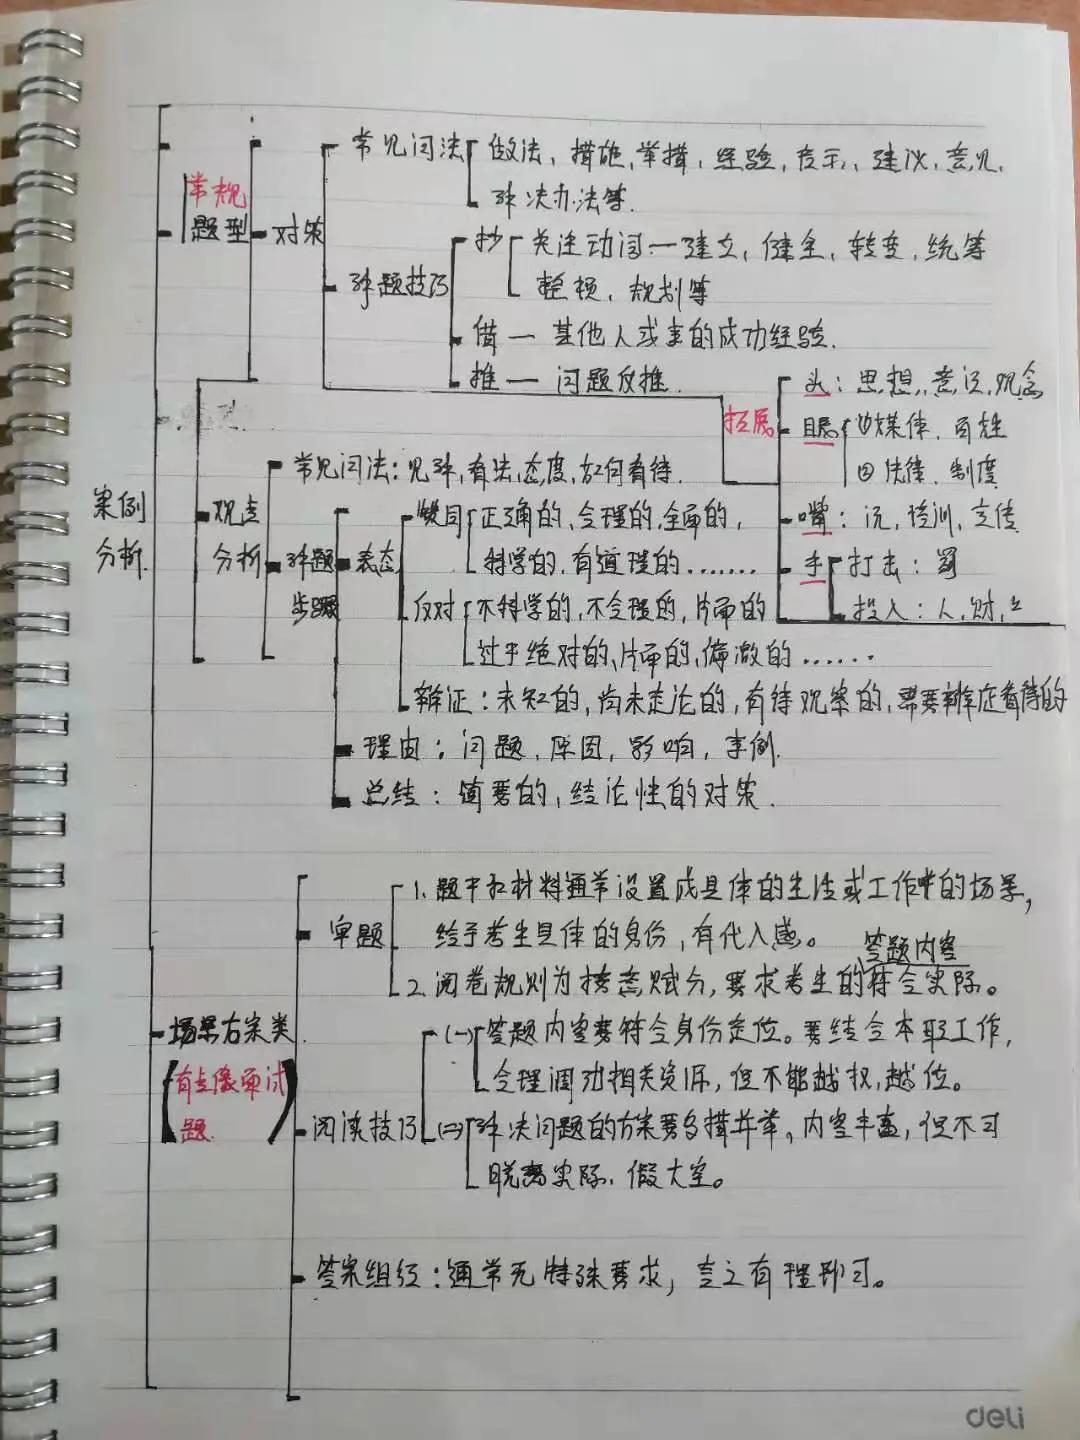 常见问法 做法、措施、举措、经验、启示、建议、意见、
解决办法等.
常规
题型
对策
解题技巧
抄 关注动词—建立,健全,转变,统筹
整顿、规划等
借 — 其他人或事的成功经验.
推 — 问题反推.
拓展
头:思想,意识,观念
眼 ①媒体、百姓
②法律、制度
嘴:说,培训,宣传
手 打击:罚
投入:人,财,
案例
分析.
观点
分析
常见问法:见解,有法,态度,如何看待.
解题
步骤
表态
赞同 正确的、合理的,全面的,
科学的、有道理的.......
反对 不科学的,不合理的,片面的
过于绝对的、片面的,偏激的......
辩证:未知的,尚未定论的,有待观察的,需要辩证看待的
理由:问题、原因,影响,事例.
总结:简要的,结论性的对策.
场景方案类
(有点像面试
题.)
审题
1.题干和材料通常设置成具体的生活或工作中的场景,
给予考生具体的身份,有代入感。
答题内容
2.阅卷规则为按意赋分,要求考生的符合实际。
阅读技巧
(一) 答题内容要符合身份定位。要结合本职工作,
合理调动相关资源,但不能越权,越位。
(二) 解决问题的方案要多措并举,内容丰富,但不可
脱离实际、假大空。
答案组织:通常无特殊要求,言之有理即可。
deli